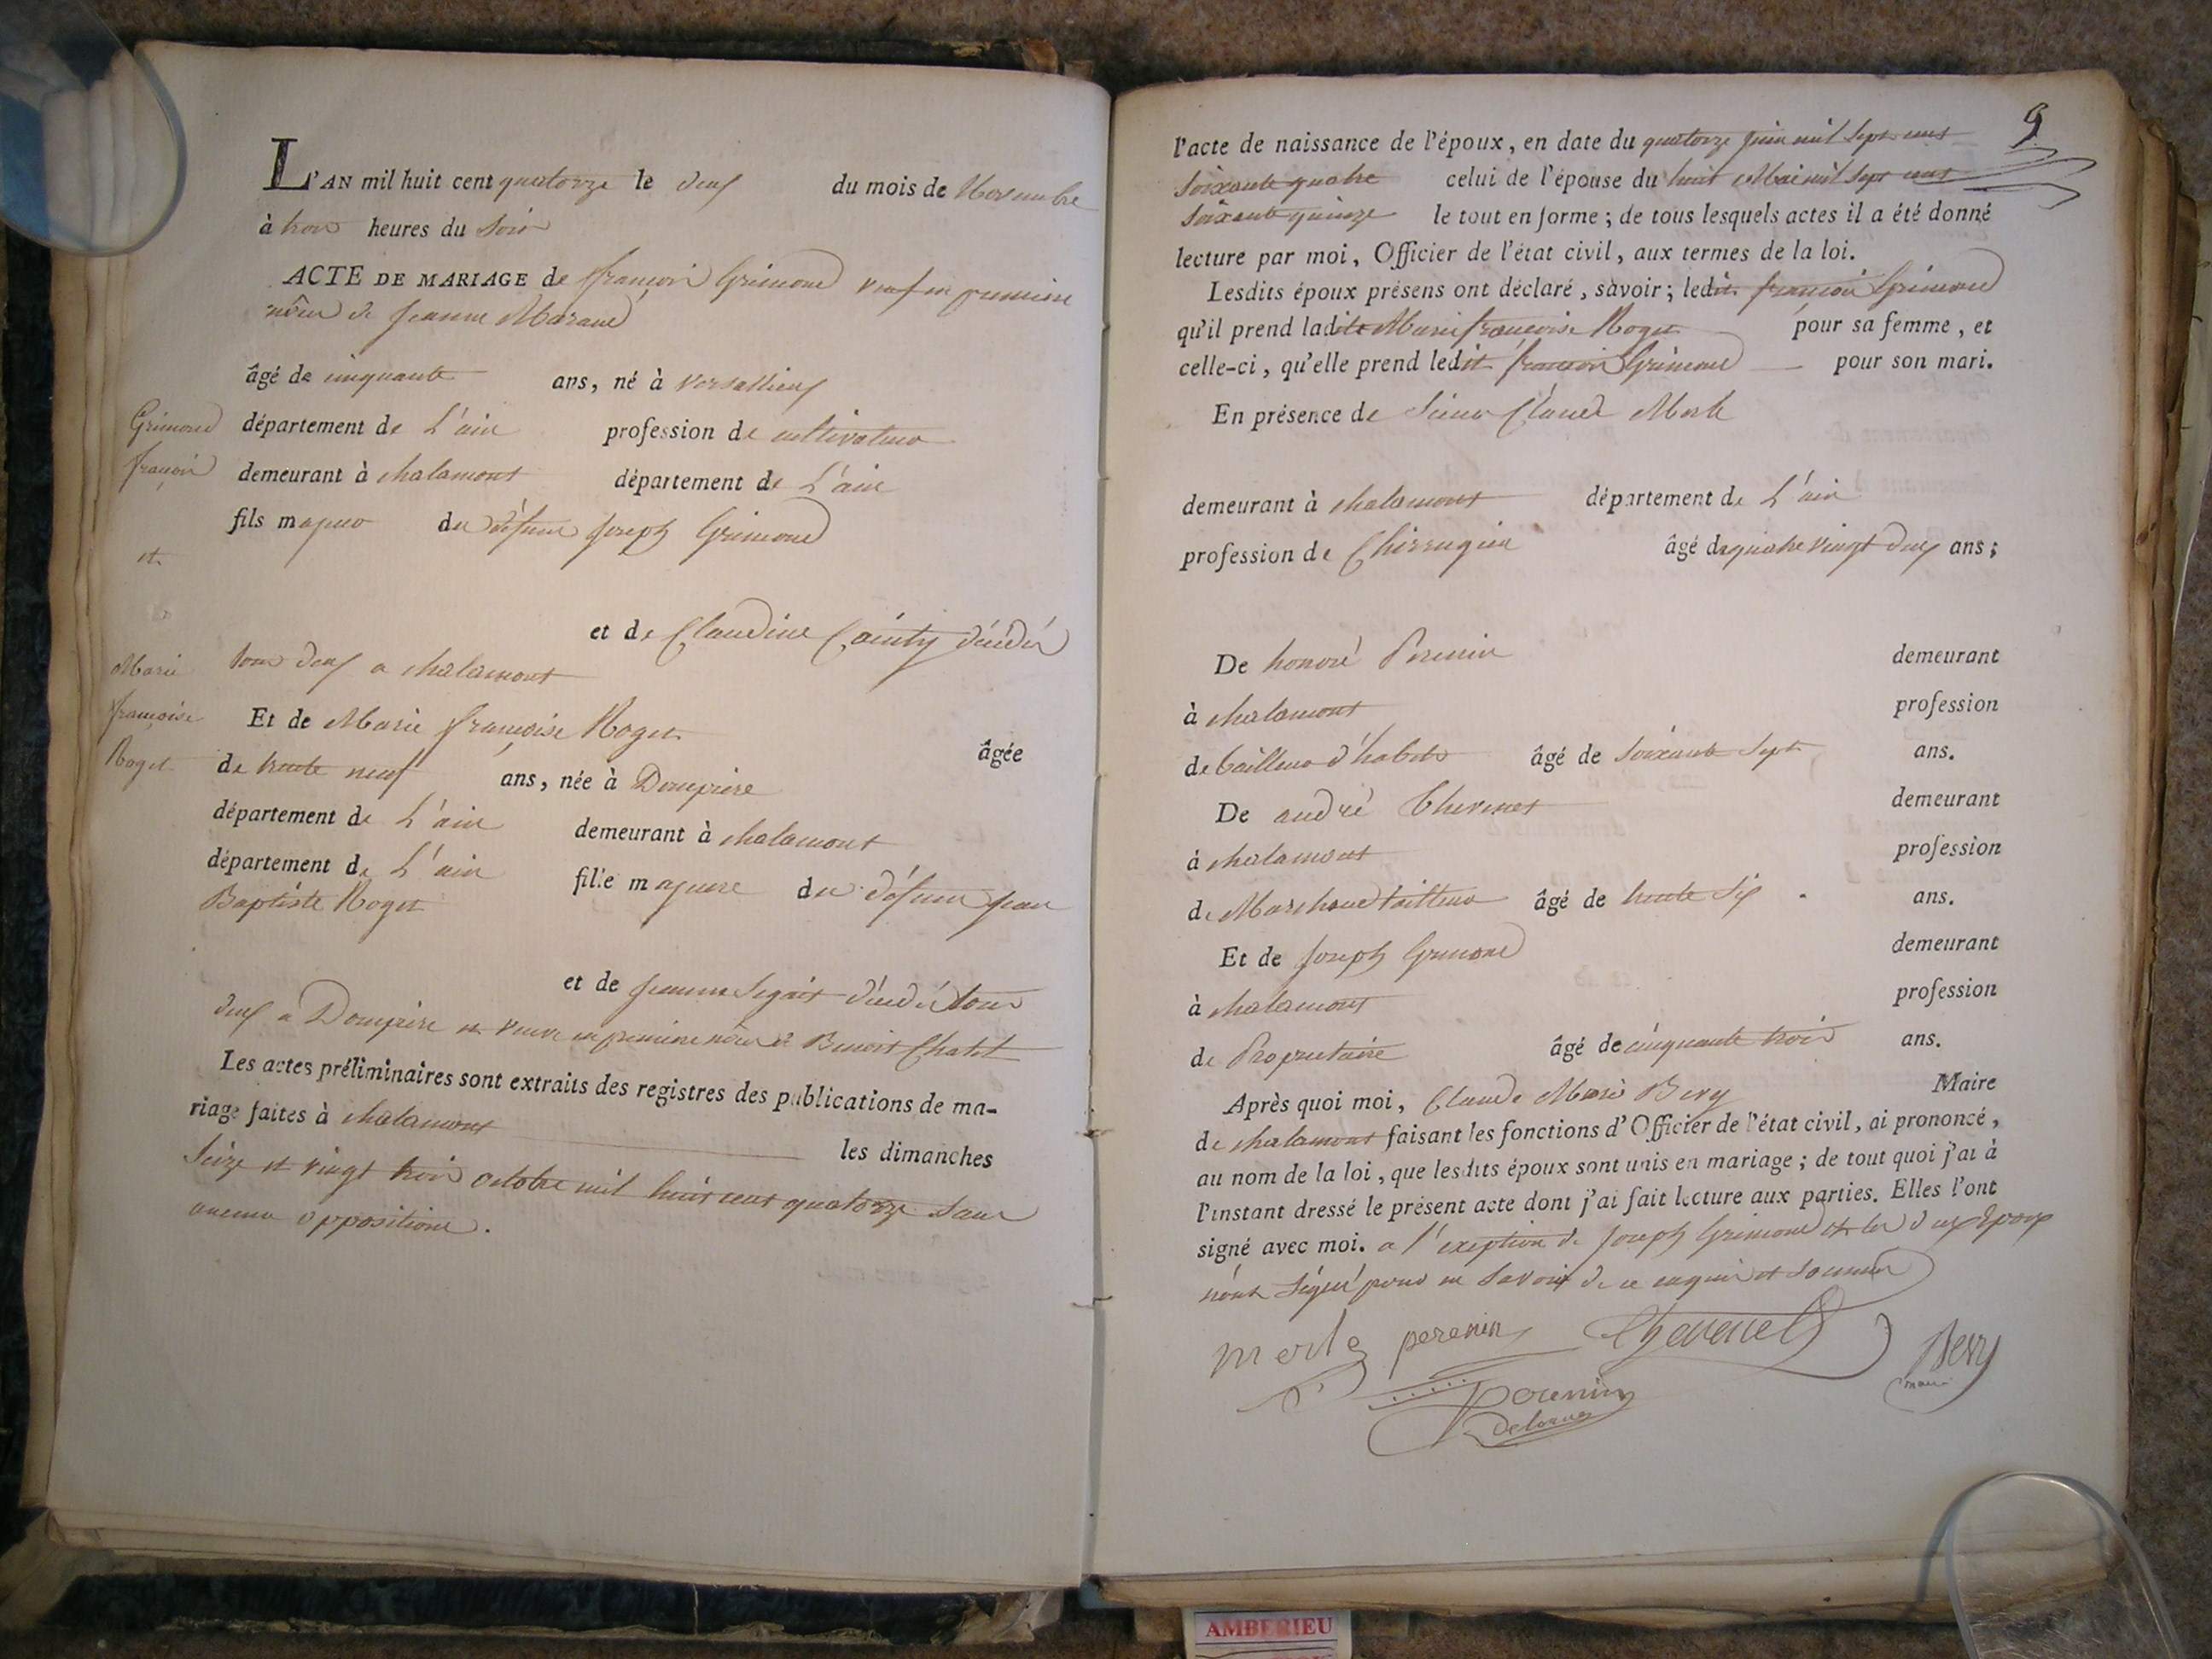 L'AN mil huit cent quatorze le deux du mois de Novembre
à trois heures du Soir
ACTE DE MARIAGE de françois Grimond veuf en premiere
nôces de Jeanne
âgé de cinquante ans, né à versallieux
Grimond
département de L'ain profession de cultivateur
françois
demeurant à chalamont département de L'ain
fils majeur du défunt Joseph Grimond
et
et de Claudine décédés
tous deux a chalamont
Marie
françoise
Roget
Et de Marie françoise Roget âgée
de trente neuf ans, née à Dompiere
département de L'ain demeurant à chalamont
département de L'ain fille majeure du défunt jean
Baptiste Roget
et de jeanne décédés tous
deux a Dompiere et veuve en premiere nôces de Benoit Chatel
Les actes préliminaires sont extraits des registres des publications de ma-
riage faites à chalamont les dimanches
Seize et vingt trois octobre mil huit cent quatorze sans
aucune oppositions.
9
l'acte de naissance de l'époux, en date du quatorze juin mil sept cent
soixante quatre celui de l'épouse du huit Mai mil sept cent
soixante quinze le tout en forme ; de tous lesquels actes il a été donné
lecture par moi, Officier de l'état civil, aux termes de la loi.
Lesdits époux présens ont déclaré, savoir ; ledit françois Grimond
qu'il prend ladite Marie françoise Roget pour sa femme, et
celle-ci, qu'elle prend ledit françois Grimond pour son mari.
En présence de Sieur Claude Merle
demeurant à chalamont département de L'ain
profession de Chirurgien âgé de quatre vingt deux ans ;
De honoré Perenin demeurant
à chalamont profession
de tailleur d'habits âgé de soixante sept ans.
De andré Thevenet demeurant
à chalamont profession
de Marchand tailleur âgé de trente six ans.
Et de Joseph Grimond demeurant
à chalamont profession
de Proprietaire âgé de cinquante trois ans.
Après quoi moi, Claude Marie Bevy Maire
de chalamont faisant les fonctions d'Officier de l'état civil, ai prononcé,
au nom de la loi, que lesdits époux sont unis en mariage ; de tout quoi j'ai à
l'instant dressé le présent acte dont j'ai fait lecture aux parties. Elles l'ont
signé avec moi. a l'exeption de Joseph Grimond et les deux Epoux
n'ont signé pour ne savoir de ce enquis et sommés
merle perenin Thevenet Bevy
maire
perenin
AMBERIEU